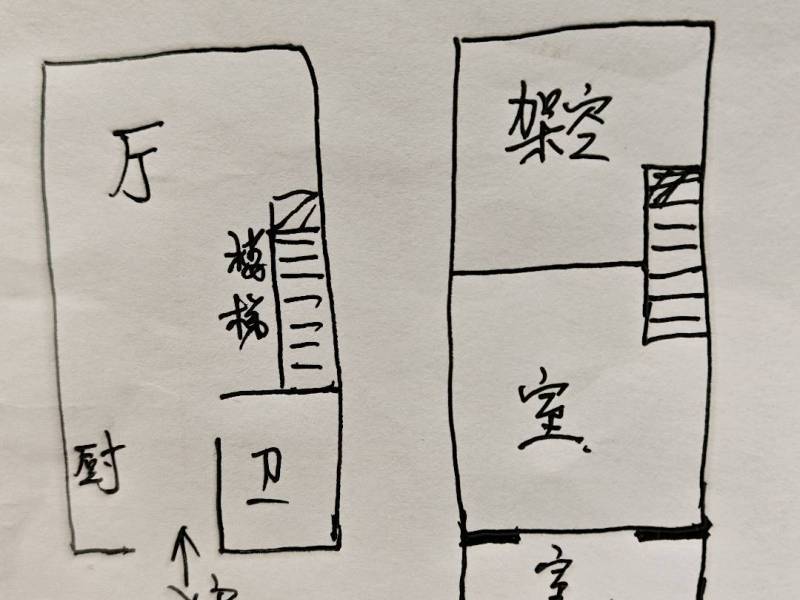 厅
楼梯
厨
卫
架空
室
室